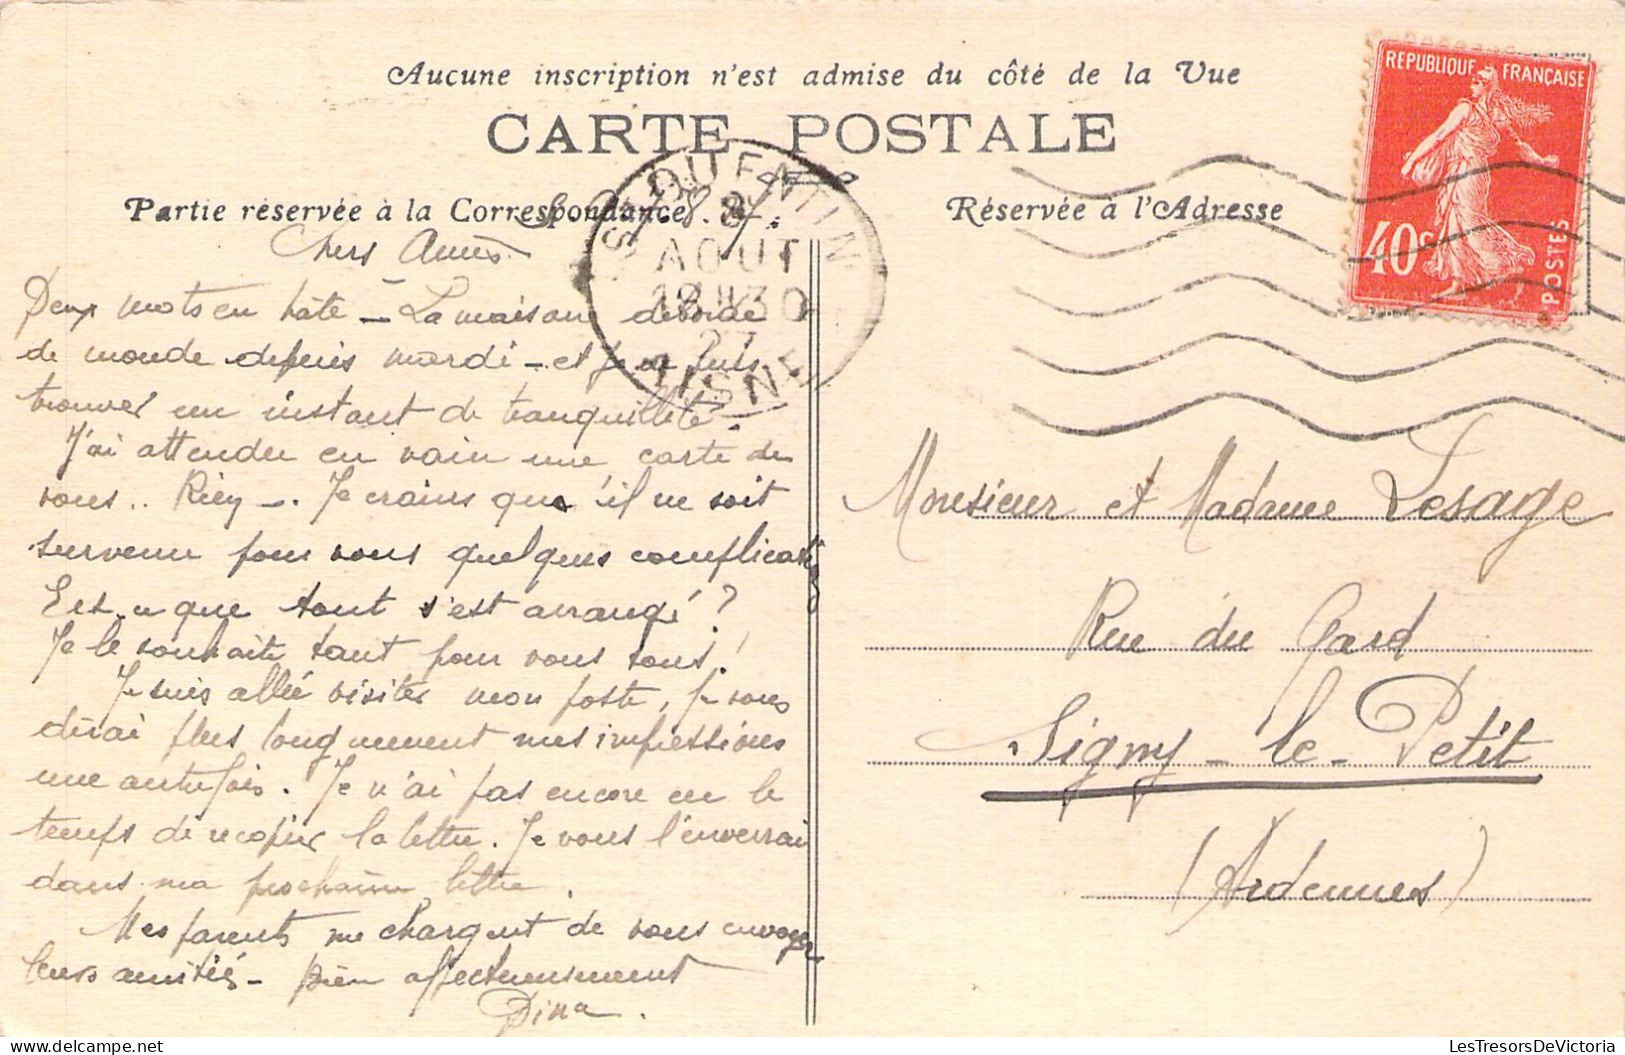 Aucune inscription n'est admise du côté de la Vue
CARTE POSTALE
Partie réservée à la Correspondance
Chers Amis
Deux mots en hâte – La maison déborde
de monde depuis mardi – et je ne puis
trouver un instant de tranquillité.
J'ai attendu en vain une carte de
vous.. Rien –. Je crains qu'il ne soit
survenu pour vous quelques complication
Est-ce que tout s'est arrangé ?
Je le souhaite tant pour vous tous !
Je suis allée visiter mon poste, je vous
dirai plus longuement mes impressions
une autre fois. Je n'ai pas encore eu le
temps de recopier la lettre. Je vous l'enverrai
dans ma prochaine lettre.
Mes parents me chargent de vous envoyer
leurs amitiés – Bien affectueusement
Dina.
ST QUENTIN
8
AOUT
18 H30
27
AISNE
REPUBLIQUE FRANÇAISE
40c
POSTES
Réservée à l'Adresse
Monsieur et Madame Lesage
Rue du Gard
Signy-le-Petit
(Ardennes)
LesTresorsDeVictoria.com